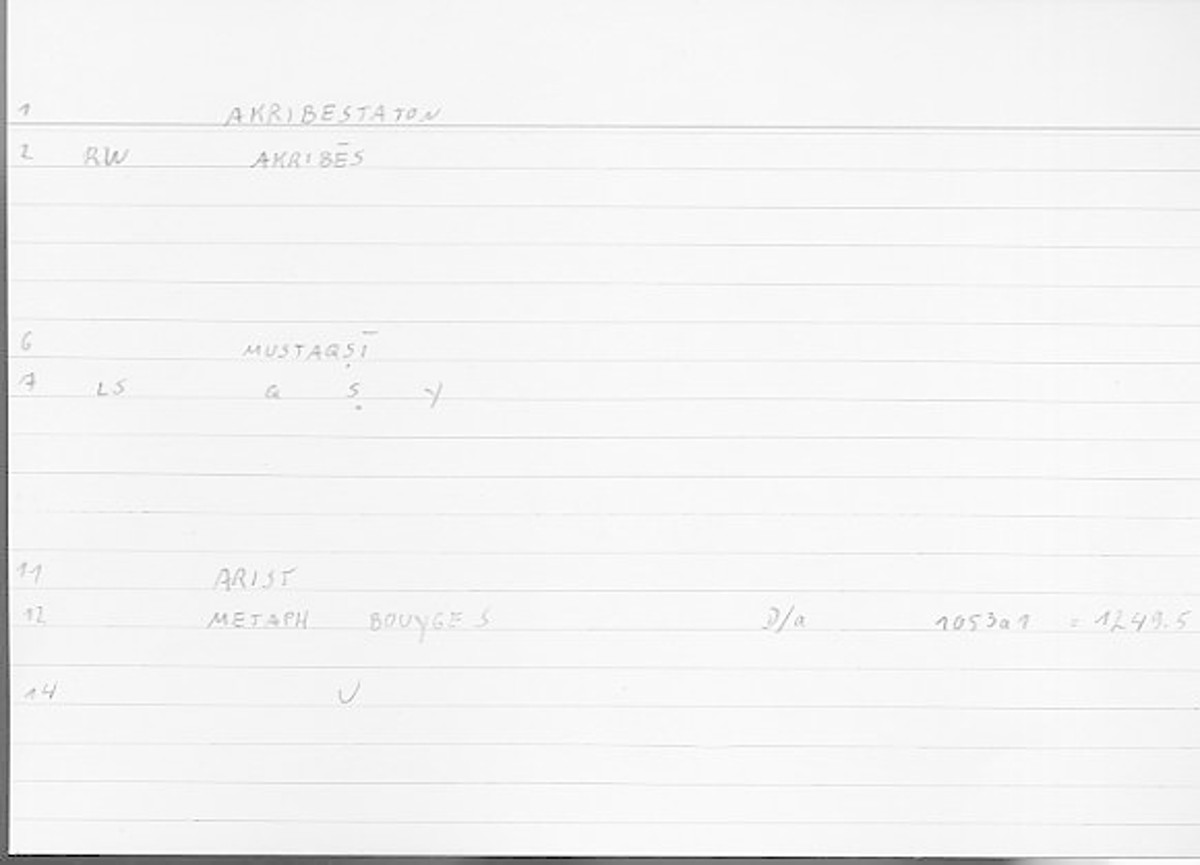 1 AKRIBESTATON
2 RW AKRIBĒS
6 MUSTAQṢĪ
7 LS Q Ṣ Y
11 ARIST
12 METAPH BOUYGES D/a 1053a1 = 1249.5
14 U